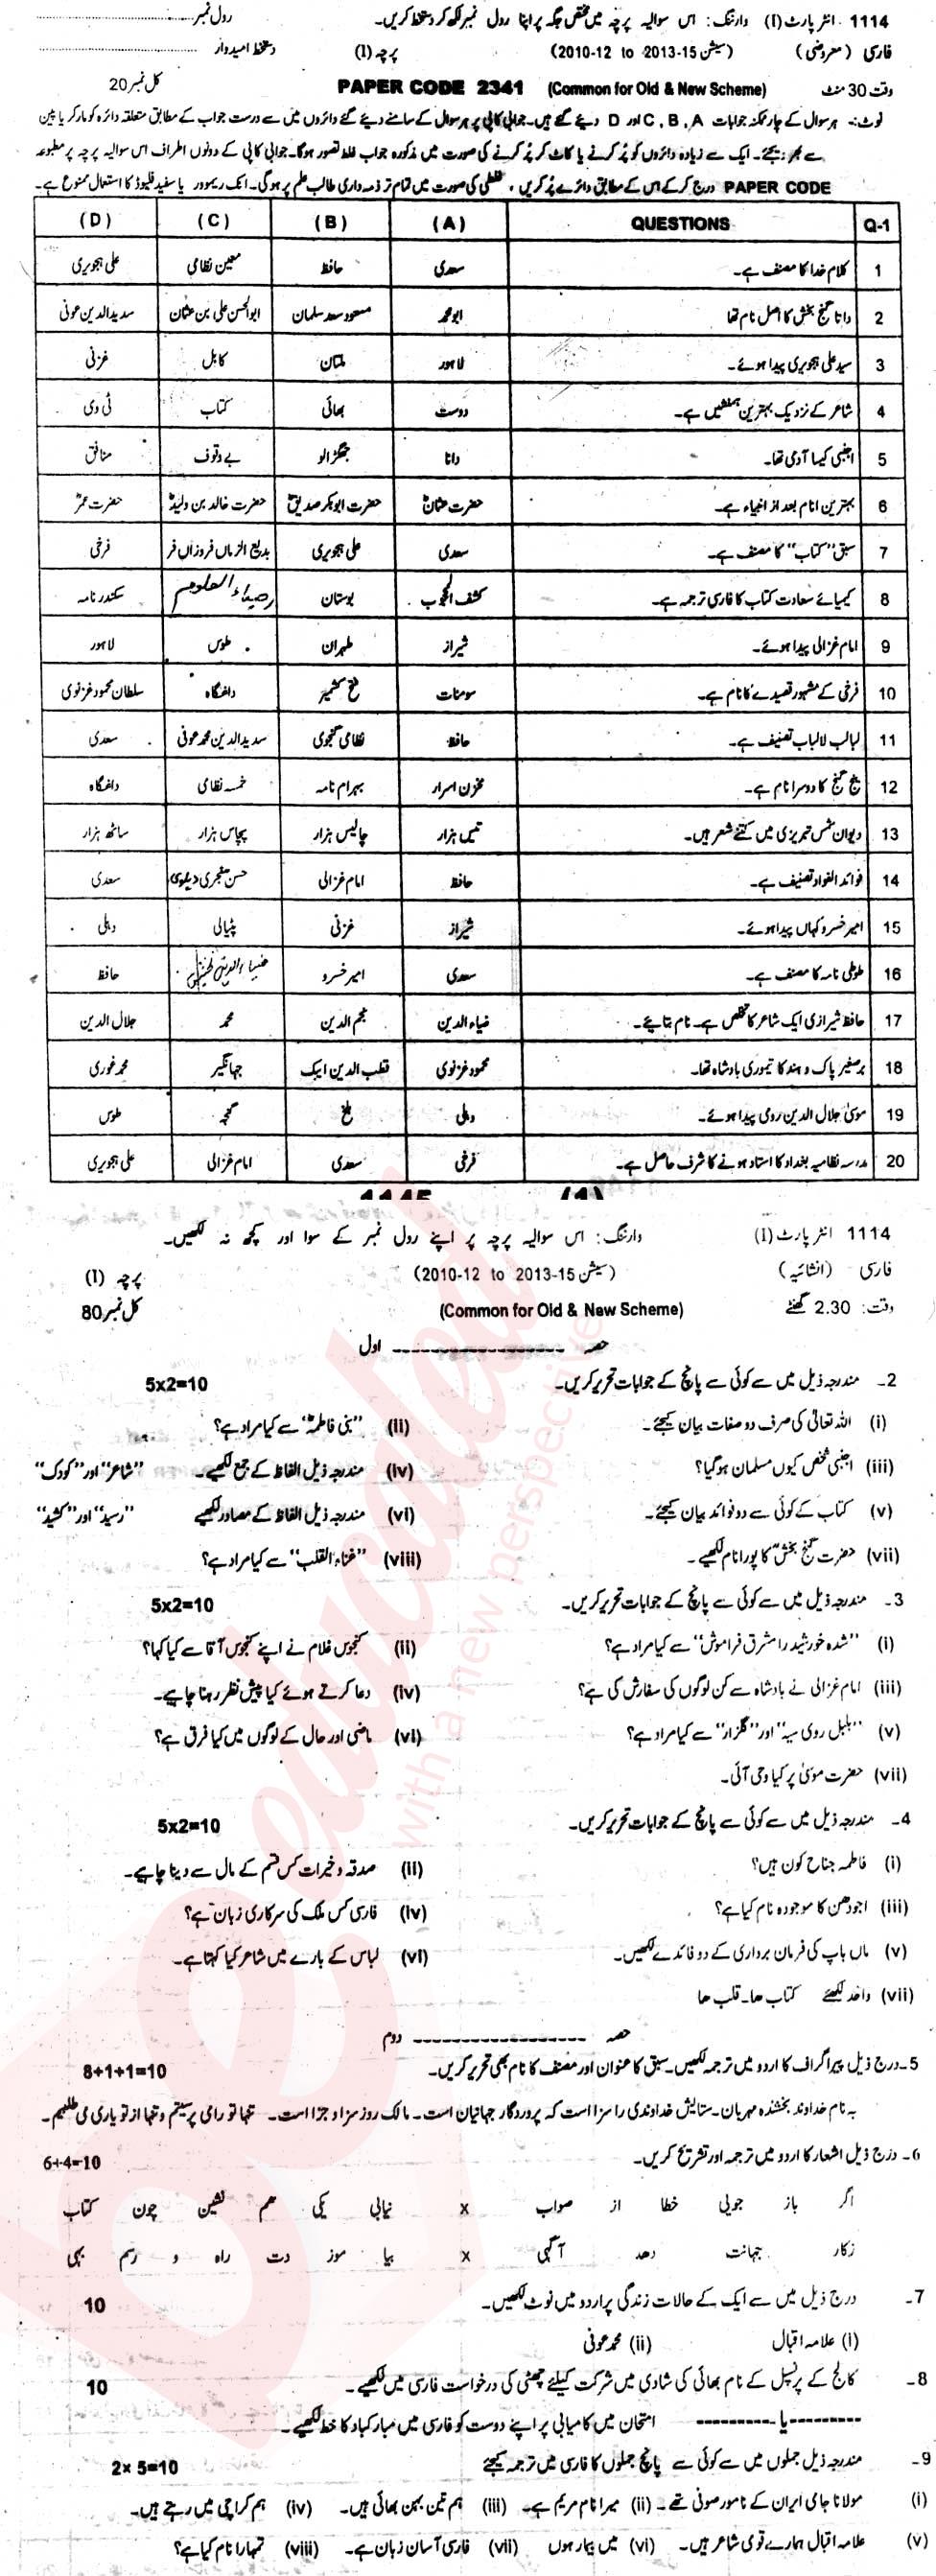 1114 انٹر پارٹ (I) وارننگ: اس سوالیہ پرچہ میں مختص جگہ پر اپنا رول نمبر لکھ کر دستخط کریں۔ رول نمبر
فارسی (معروضی) (سیشن 2013-15 to 2010-12) پرچہ (I) دستخط امیدوار
وقت 30 منٹ PAPER CODE 2341 (Common for Old & New Scheme) کل نمبر 20
نوٹ:۔ ہر سوال کے چار ممکنہ جوابات A , B , C اور D دیئے گئے ہیں۔ جوابی کاپی پر ہر سوال کے سامنے دیئے گئے دائروں میں سے درست جواب کے مطابق متعلقہ دائرہ کو مارکر یا پین
سے بھر دیجئے۔ ایک سے زیادہ دائروں کو پُر کرنے یا کاٹ کر پُر کرنے کی صورت میں مذکورہ جواب غلط تصور ہوگا۔ جوابی کاپی کے دونوں اطراف اس سوالیہ پرچہ پر مطبوعہ
PAPER CODE درج کر کے اس کے مطابق دائرے پُر کریں، غلطی کی صورت میں تمام تر ذمہ داری طالب علم پر ہوگی۔ انک ریموور یا سفید فلیوڈ کا استعمال ممنوع ہے۔
Q-1 QUESTIONS (A) (B) (C) (D)
1 کلام خدا کا مصنف ہے۔ سعدی حافظ معین نظامی علی ہجویری
2 داتا گنج بخش کا اصل نام تھا ابو محمد مسعود سعد سلمان ابوالحسن علی بن عثمان سدید الدین عوفی
3 سید علی ہجویری پیدا ہوئے۔ لاہور ملتان کابل غزنی
4 شاعر کے نزدیک بہترین ہمنشیں ہے۔ دوست بھائی کتاب ٹی وی
5 اجنبی کیسا آدمی تھا۔ دانا جھگڑالو بے وقوف منافق
6 بہترین انام بعد از انبیاء ہے۔ حضرت عثمانؓ حضرت ابوبکر صدیقؓ حضرت خالد بن ولیدؓ حضرت عمرؓ
7 سبق "کتاب" کا مصنف ہے۔ سعدی علی ہجویری بدیع الزماں فروزاں فر فرخی
8 کیمیائے سعادت کتاب کا فارسی ترجمہ ہے۔ کشف المحجوب بوستان سکندر نامہ
9 امام غزالی پیدا ہوئے۔ شیراز طہران طوس لاہور
10 فرخی کے مشہور قصیدے کا نام ہے۔ سومنات فتح کشمیر داغگاہ سلطان محمود غزنوی
11 لباب لالباب تصنیف ہے۔ حافظ نظامی گنجوی سدید الدین محمد عوفی سعدی
12 پنج گنج کا دوسرا نام ہے۔ مخزن اسرار بہرام نامہ خمسہ نظامی داغگاہ
13 دیوان شمس تبریزی میں کتنے شعر ہیں۔ تیس ہزار چالیس ہزار پچاس ہزار ساٹھ ہزار
14 فوائد الفواد تصنیف ہے۔ حافظ امام غزالی حسن سنجری دہلوی سعدی
15 امیر خسرو کہاں پیدا ہوئے۔ شیراز غزنی پٹیالی دہلی
16 طوطی نامہ کا مصنف ہے۔ سعدی امیر خسرو ضیاء الدین نخشبی حافظ
17 حافظ شیرازی ایک شاعر کا تخلص ہے۔ نام بتایئے۔ ضیاء الدین نجم الدین محمد جلال الدین
18 برصغیر پاک و ہند کا تیموری بادشاہ تھا۔ محمود غزنوی قطب الدین ایبک جہانگیر محمد غوری
19 موسیٰ جلال الدین رومی پیدا ہوئے۔ دہلی بلخ گنجہ طوس
20 مدرسہ نظامیہ بغداد کا استاد ہونے کا شرف حاصل ہے۔ فرخی سعدی امام غزالی علی ہجویری
1114 انٹر پارٹ (I) وارننگ: اس سوالیہ پرچہ پر اپنے رول نمبر کے سوا اور کچھ نہ لکھیں۔
فارسی (انشائیہ) (سیشن 2013-15 to 2010-12) پرچہ (I)
وقت: 2.30 گھنٹے (Common for Old & New Scheme) کل نمبر 80
حصہ ------------------ اول
2۔ مندرجہ ذیل میں سے کوئی سے پانچ کے جوابات تحریر کریں۔ 5x2=10
(i) اللہ تعالیٰ کی صرف دو صفات بیان کیجئے۔ (ii) "بنی فاطمہؓ" سے کیا مراد ہے؟
(iii) اجنبی شخص کیوں مسلمان ہو گیا؟ (iv) مندرجہ ذیل الفاظ کے جمع لکھیے۔ "شاعر" اور "کودک"
(v) کتاب کے کوئی سے دو فوائد بیان کیجئے۔ (vi) مندرجہ ذیل الفاظ کے مصادر لکھیے "رسید" اور "کشید"
(vii) حضرت گنج بخشؒ کا پورا نام لکھیے۔ (viii) "غناء القلب" سے کیا مراد ہے؟
3۔ مندرجہ ذیل میں سے کوئی سے پانچ کے جوابات تحریر کریں۔ 5x2=10
(i) "شدہ خورشید را مشرق فراموش" سے کیا مراد ہے؟ (ii) کنجوس غلام نے اپنے کنجوس آقا سے کیا کہا؟
(iii) امام غزالی نے بادشاہ سے کن لوگوں کی سفارش کی ہے؟ (iv) دعا کرتے ہوئے کیا پیش نظر رہنا چاہیے۔
(v) "بلبل روی سیہ" اور "گلزار" سے کیا مراد ہے؟ (vi) ماضی اور حال کے لوگوں میں کیا فرق ہے؟
(vii) حضرت موسیٰ پر کیا وحی آئی۔
4۔ مندرجہ ذیل میں سے کوئی سے پانچ کے جوابات تحریر کریں۔ 5x2=10
(i) فاطمہ جناح کون ہیں؟ (ii) صدقہ و خیرات کس قسم کے مال سے دینا چاہیے۔
(iii) اجودھن کا موجودہ نام کیا ہے؟ (iv) فارسی کس ملک کی سرکاری زبان ہے؟
(v) ماں باپ کی فرمان برداری کے دو فائدے لکھیں۔ (vi) لباس کے بارے میں شاعر کیا کہتا ہے۔
(vii) واحد لکھئے کتاب ھا۔ قلب ھا
حصہ ------------------ دوم
5۔ درج ذیل پیراگراف کا اردو میں ترجمہ لکھیں۔ سبق کا عنوان اور مصنف کا نام بھی تحریر کریں۔ 8+1+1=10
بہ نام خداوند بخشندہ مہربان۔ ستایش خداوندی را سزا است کہ پروردگار جہانیان است۔ مالک روز سزا و جزا است۔ تنہا تو را می پرستیم و تنہا از تو یاری می طلبیم۔
6۔ درج ذیل اشعار کا اردو میں ترجمہ اور تشریح کریں۔ 6+4=10
اگر باز جویی خطا از صواب x نیابی یکی ھم نشین چون کتاب
زکار جہانت دھد آگہی x بیا موز دت راہ و رسم بہی
7۔ درج ذیل میں سے ایک کے حالات زندگی پر اردو میں نوٹ لکھیں۔ 10
(i) علامہ اقبال (ii) محمد عوفی
8۔ کالج کے پرنسپل کے نام بھائی کی شادی میں شرکت کیلئے چھٹی کی درخواست فارسی میں لکھیے۔ 10
---------یا--------- امتحان میں کامیابی پر اپنے دوست کو فارسی میں مبارکباد کا خط لکھیے۔
9۔ مندرجہ ذیل جملوں میں سے کوئی سے پانچ جملوں کا فارسی میں ترجمہ کیجئے 2x 5=10
(i) مولانا جامی ایران کے نامور صوفی تھے۔ (ii) میرا نام مریم ہے۔ (iii) ہم تین بہن بھائی ہیں۔ (iv) ہم کراچی میں رہتے ہیں۔
(v) علامہ اقبال ہمارے قومی شاعر ہیں۔ (vi) میں بیمار ہوں (vii) فارسی آسان زبان ہے۔ (viii) تمہارا نام کیا ہے؟